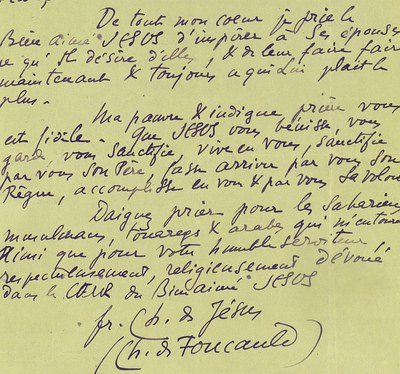 De tout mon coeur je prie le
Bien aimé JESUS d'inspirer à Ses épouses
ce qu'Il désire d'elles, & de leur faire faire
maintenant & toujours ce qui Lui plaît le
plus -
Ma pauvre & indigne prière vous
est fidèle - Que JESUS vous bénisse, vous
garde, vous sanctifie, vive en vous, sanctifie
par vous Son Père, fasse arriver par vous Son
Règne, accomplisse en vous & par vous Sa Volonté
Daignez prier pour les Sahariens
musulmans, touaregs & arabes qui m'entourent
ainsi que pour votre humble serviteur,
respectueusement, religieusement dévoué
dans le CŒUR du Bienaimé JESUS
fr. Ch. de Jésus
(Ch. de Foucauld)